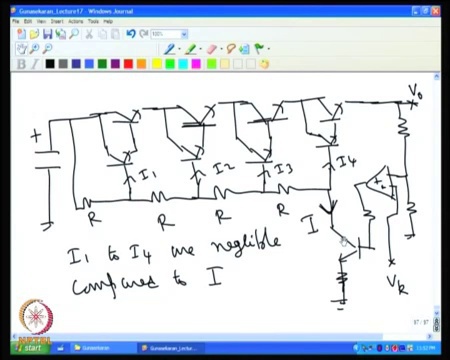 Gunasekaran_Lecture17 - Windows Journal
File Edit View Insert Actions Tools Help
100%
B I
V0
+
I1 I2 I3 I4
R R R R
I
VR
I1 to I4 are neglible
compared to I
37 / 37
start Gunasekaran Gunasekaran_Lectu...